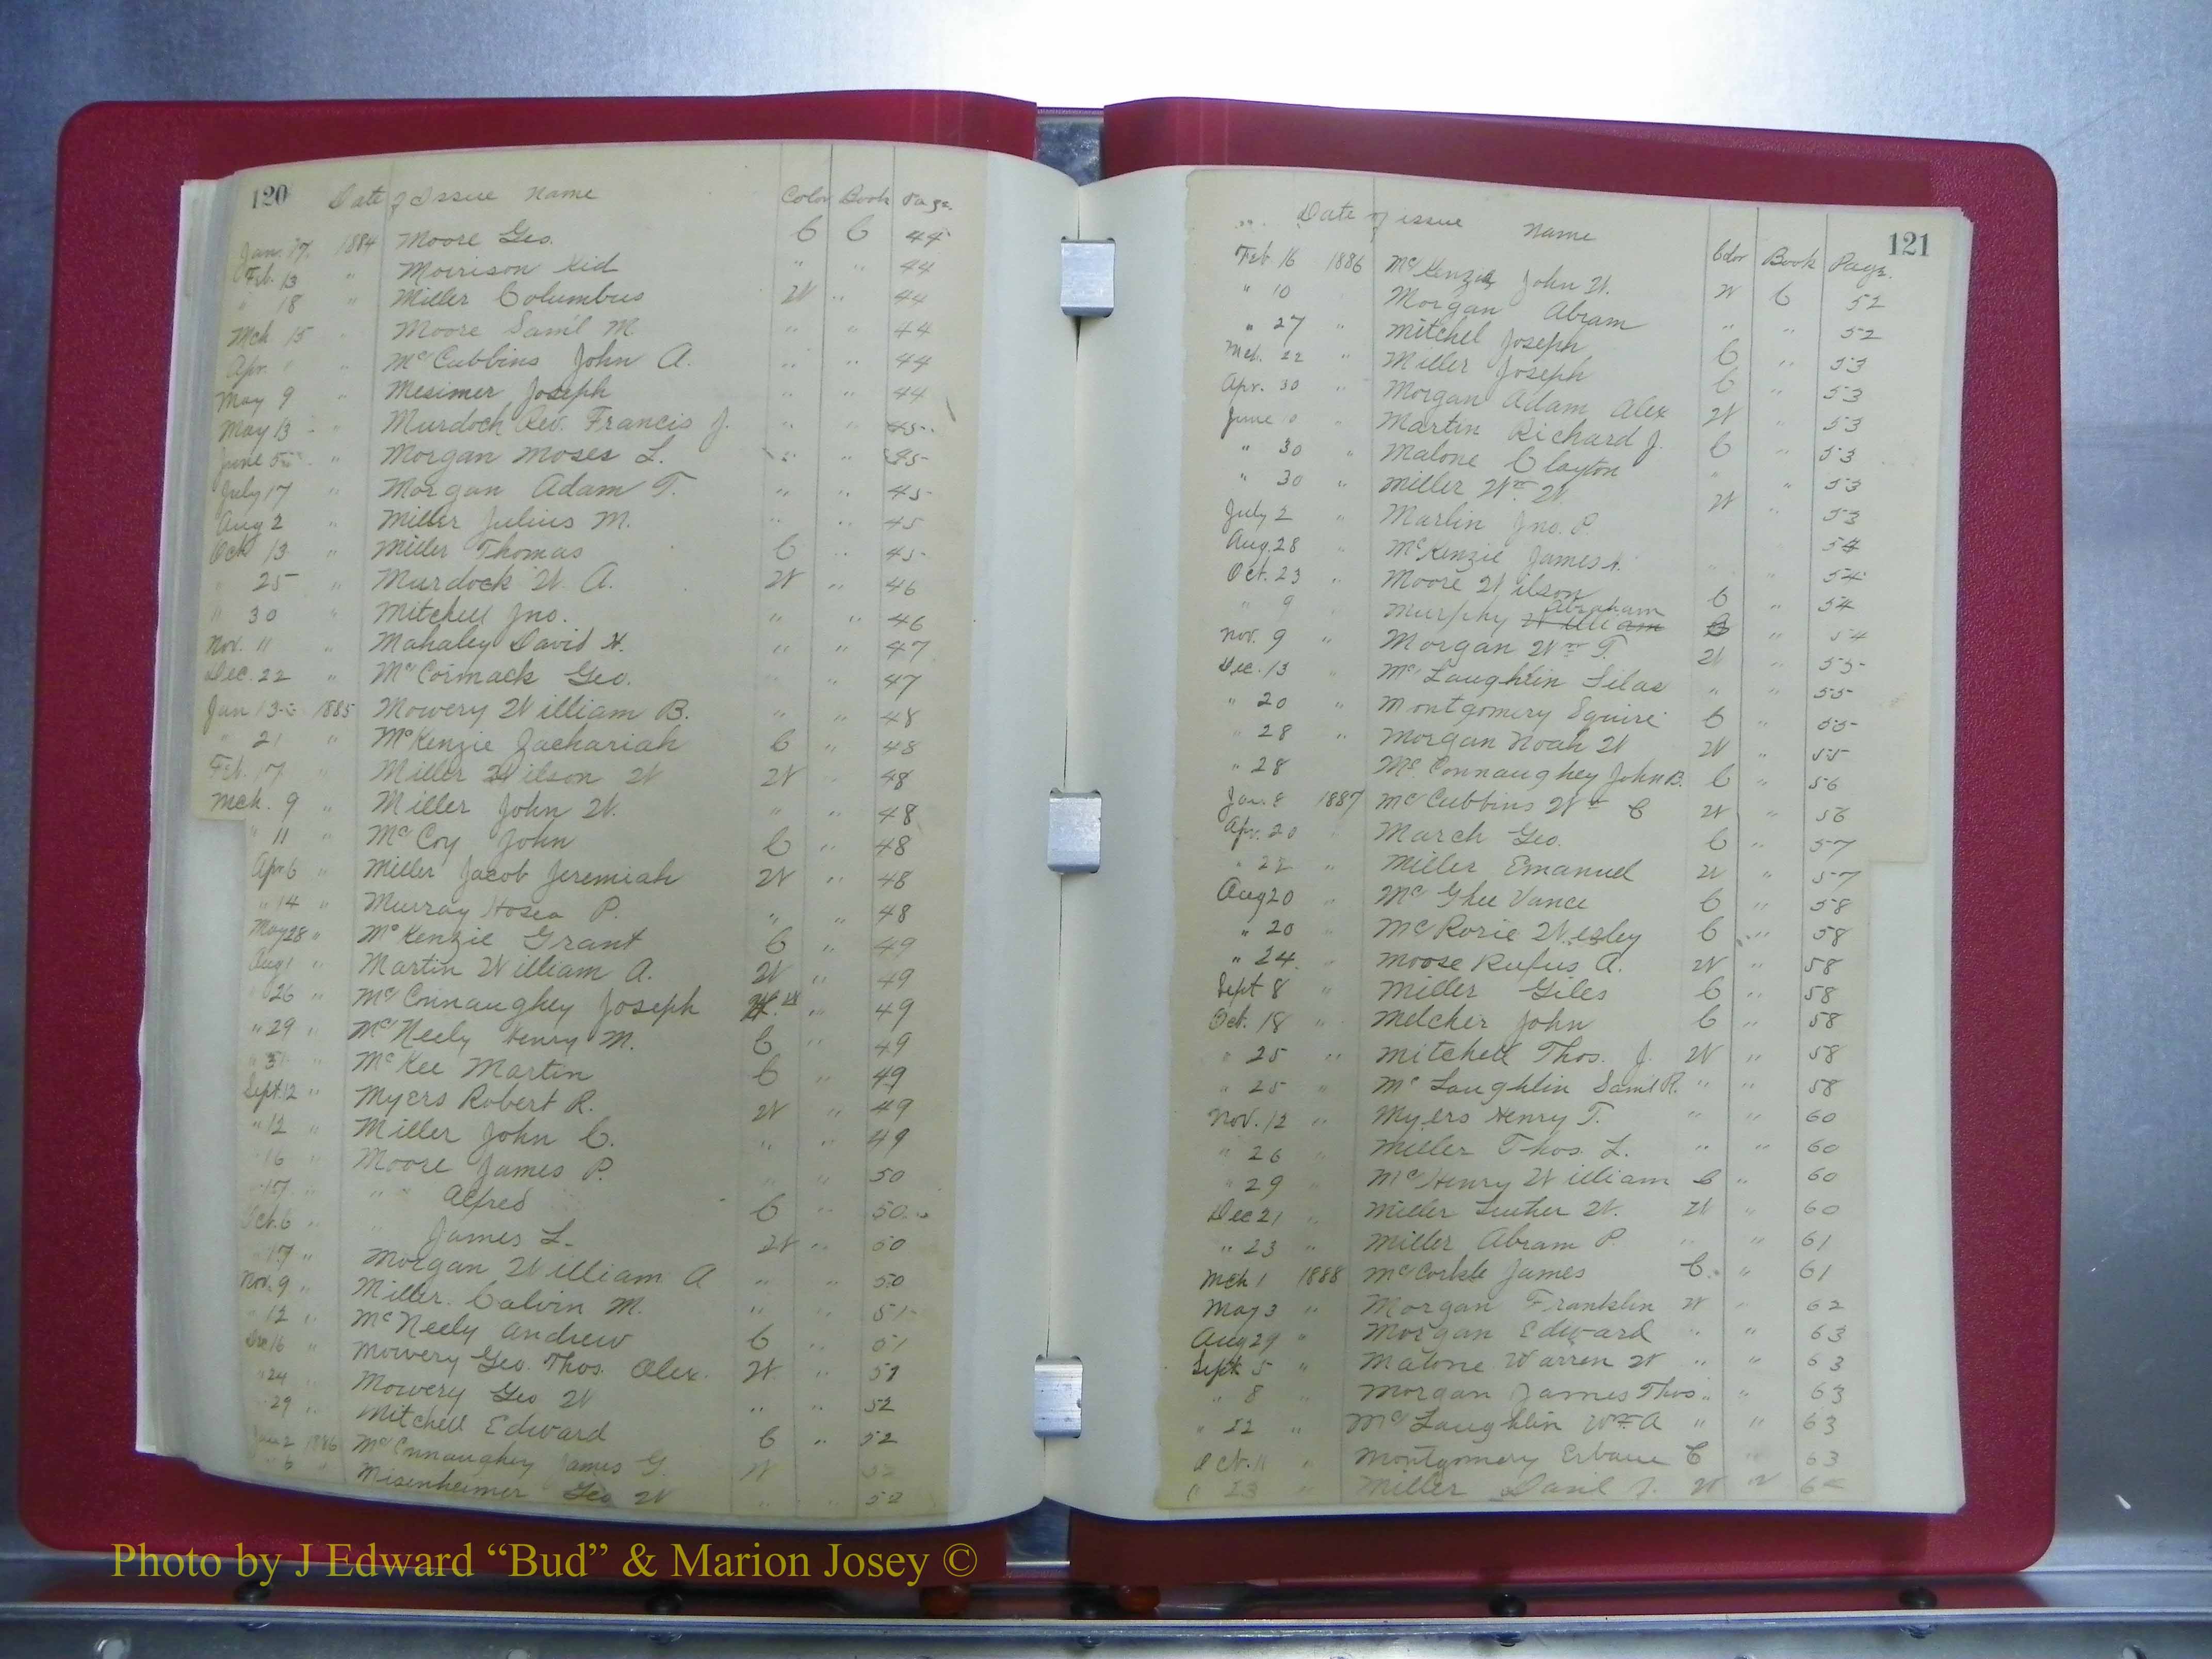 120 Date of Issue Name Color Book Page.
Jan. 17. 1884 Moore Geo. C C 44
Feb. 13 " Morrison Kid " " 44
" 18 " Miller Columbus W " 44
Mch 15 " Moore Sam'l M. " " 44
Apr. " McCubbins John A. " " 44
May 9 " Mesimer Joseph " " 44
May 13 " Murdoch Rev. Francis J. " " 45
June 5 " Morgan Moses L. " " 45
July 17 " Morgan Adam T. " " 45
Aug 2 " Miller Julius M. " " 45
Oct 13 " Miller Thomas C " 45
" 25 " Murdock W. A. W " 46
" 30 " Mitchell Jno. " " 46
Nov. 11 " Mahaley David H. " " 47
Dec. 22 " McCormack Geo. " " 47
Jan 13 1885 Mowery William B. " " 48
" 21 " McKenzie Zachariah C " 48
Feb. 17 " Miller Wilson W W 48
Mch. 9 " Miller John W. " " 48
" 11 " McCoy John C " 48
Apr 6 " Miller Jacob Jeremiah W " 48
" 14 " Murray Hosea P. " " 48
May 28 " McKenzie Grant C " 49
Aug 1 " Martin William A. W " 49
" 26 " McConnaughey Joseph W " 49
" 29 " McNeely Henry M. C " 49
" 31 " McKee Martin C " 49
Sept. 12 " Myers Robert R. W " 49
" 12 " Miller John C. " " 49
" 16 " Moore James P. " " 50
" 17 " " " Alfred C " 50
Oct. 6 " " James L. W " 50
" 17 " Morgan William A " " 50
Nov. 9 " Miller. Calvin M. " " 51
" 12 " McNeely Andrew C " 51
Dec 16 " Mowery Geo. Thos. Alex. W " 51
" 24 " Mowery Geo W " " 52
" 29 " Mitchell Edward C " 52
Jan 2 1886 McConnaughey James G. W 52
" 6 " Misenheimer Geo W " " 52
Date of issue Name Color Book Page. 121
Feb 16 1886 McKenzie John W. W C 52
" 10 Morgan Abram " " 52
" 27 " Mitchel Joseph C " 53
Mch. 22 " Miller Joseph C " 53
Apr. 30 " Morgan Adam Alex W " 53
June " Martin Richard J. C " 53
" 30 " Malone Clayton " " 53
" 30 " Miller Wm. W. W " 53
July 2 " Marlin Jno. P. 54
Aug. 28 " McKenzie James " " 54
Oct. 23 " Moore Wilson C " 54
" 9 " Murphy William Abraham C " 54
Nov. 9 " Morgan Wm T. W " 55
Dec. 13 " McLaughlin Silas " " 55
" 20 " Montgomery Squire C " 55
" 28 " Morgan Noah W W " 55
" 28 McConnaughey John B. C " 56
Jan. 8 1887 McCubbins Wm C W " 56
Apr. 20 " March Geo. C " 57
" 22 " Miller Emanuel W " 57
Aug 20 " McGhee Vance C " 58
" 20 " McRorie Wesley C " 58
" 24 " Moose Rufus A. W " 58
Sept 8 " Miller Giles C " 58
Oct. 18 " Melcher John C " 58
" 25 " Mitchell Thos. J. W " 58
" 25 " McLaughlin Saml R. " " 58
Nov. 12 " Myers Henry T. " " 60
" 26 " Miller Thos. L. " " 60
" 29 McHenry William C " 60
Dec 21 " Miller Luther W. W " 60
" 23 " Miller Abram P. " " 61
Mch 1 1888 McCorkle James C. " 61
May 3 " Morgan Franklin W " 62
Aug 29 " Morgan Edward " " 63
Sept 5 " Malone Warren W " " 63
" 8 " Morgan James Thos. " " 63
" 22 " McLaughlin Wm A " " 63
Oct. 11 " Montgomery C " 63
" 23 " Miller W
Photo by J Edward “Bud” & Marion Josey ©